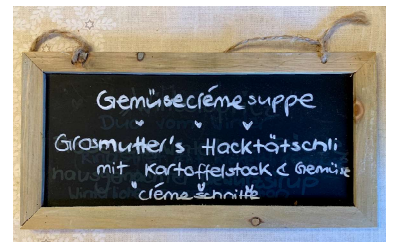 Gemüsecrémesuppe
Grosmutter's Hacktätschli
mit Kartoffelstock & Gemüse
"créme schnitte"